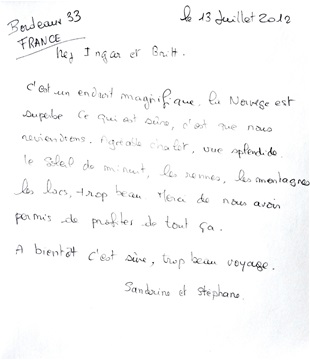 Bordeaux 33
FRANCE
le 13 Juillet 2012
Hej Ingar et Britt.
C'est un endroit magnifique. La Norvège est
superbe Ce qui est sûre, c'est que nous
reviendrons. Agréable chalet, vue splendide.
le Soleil de minuit, les rennes, les montagnes
les lacs, trop beau Merci de nous avoir
permis de profiter de tout ça.
A bientôt c'est sûre, trop beau voyage.
Sandrine et Stéphane.